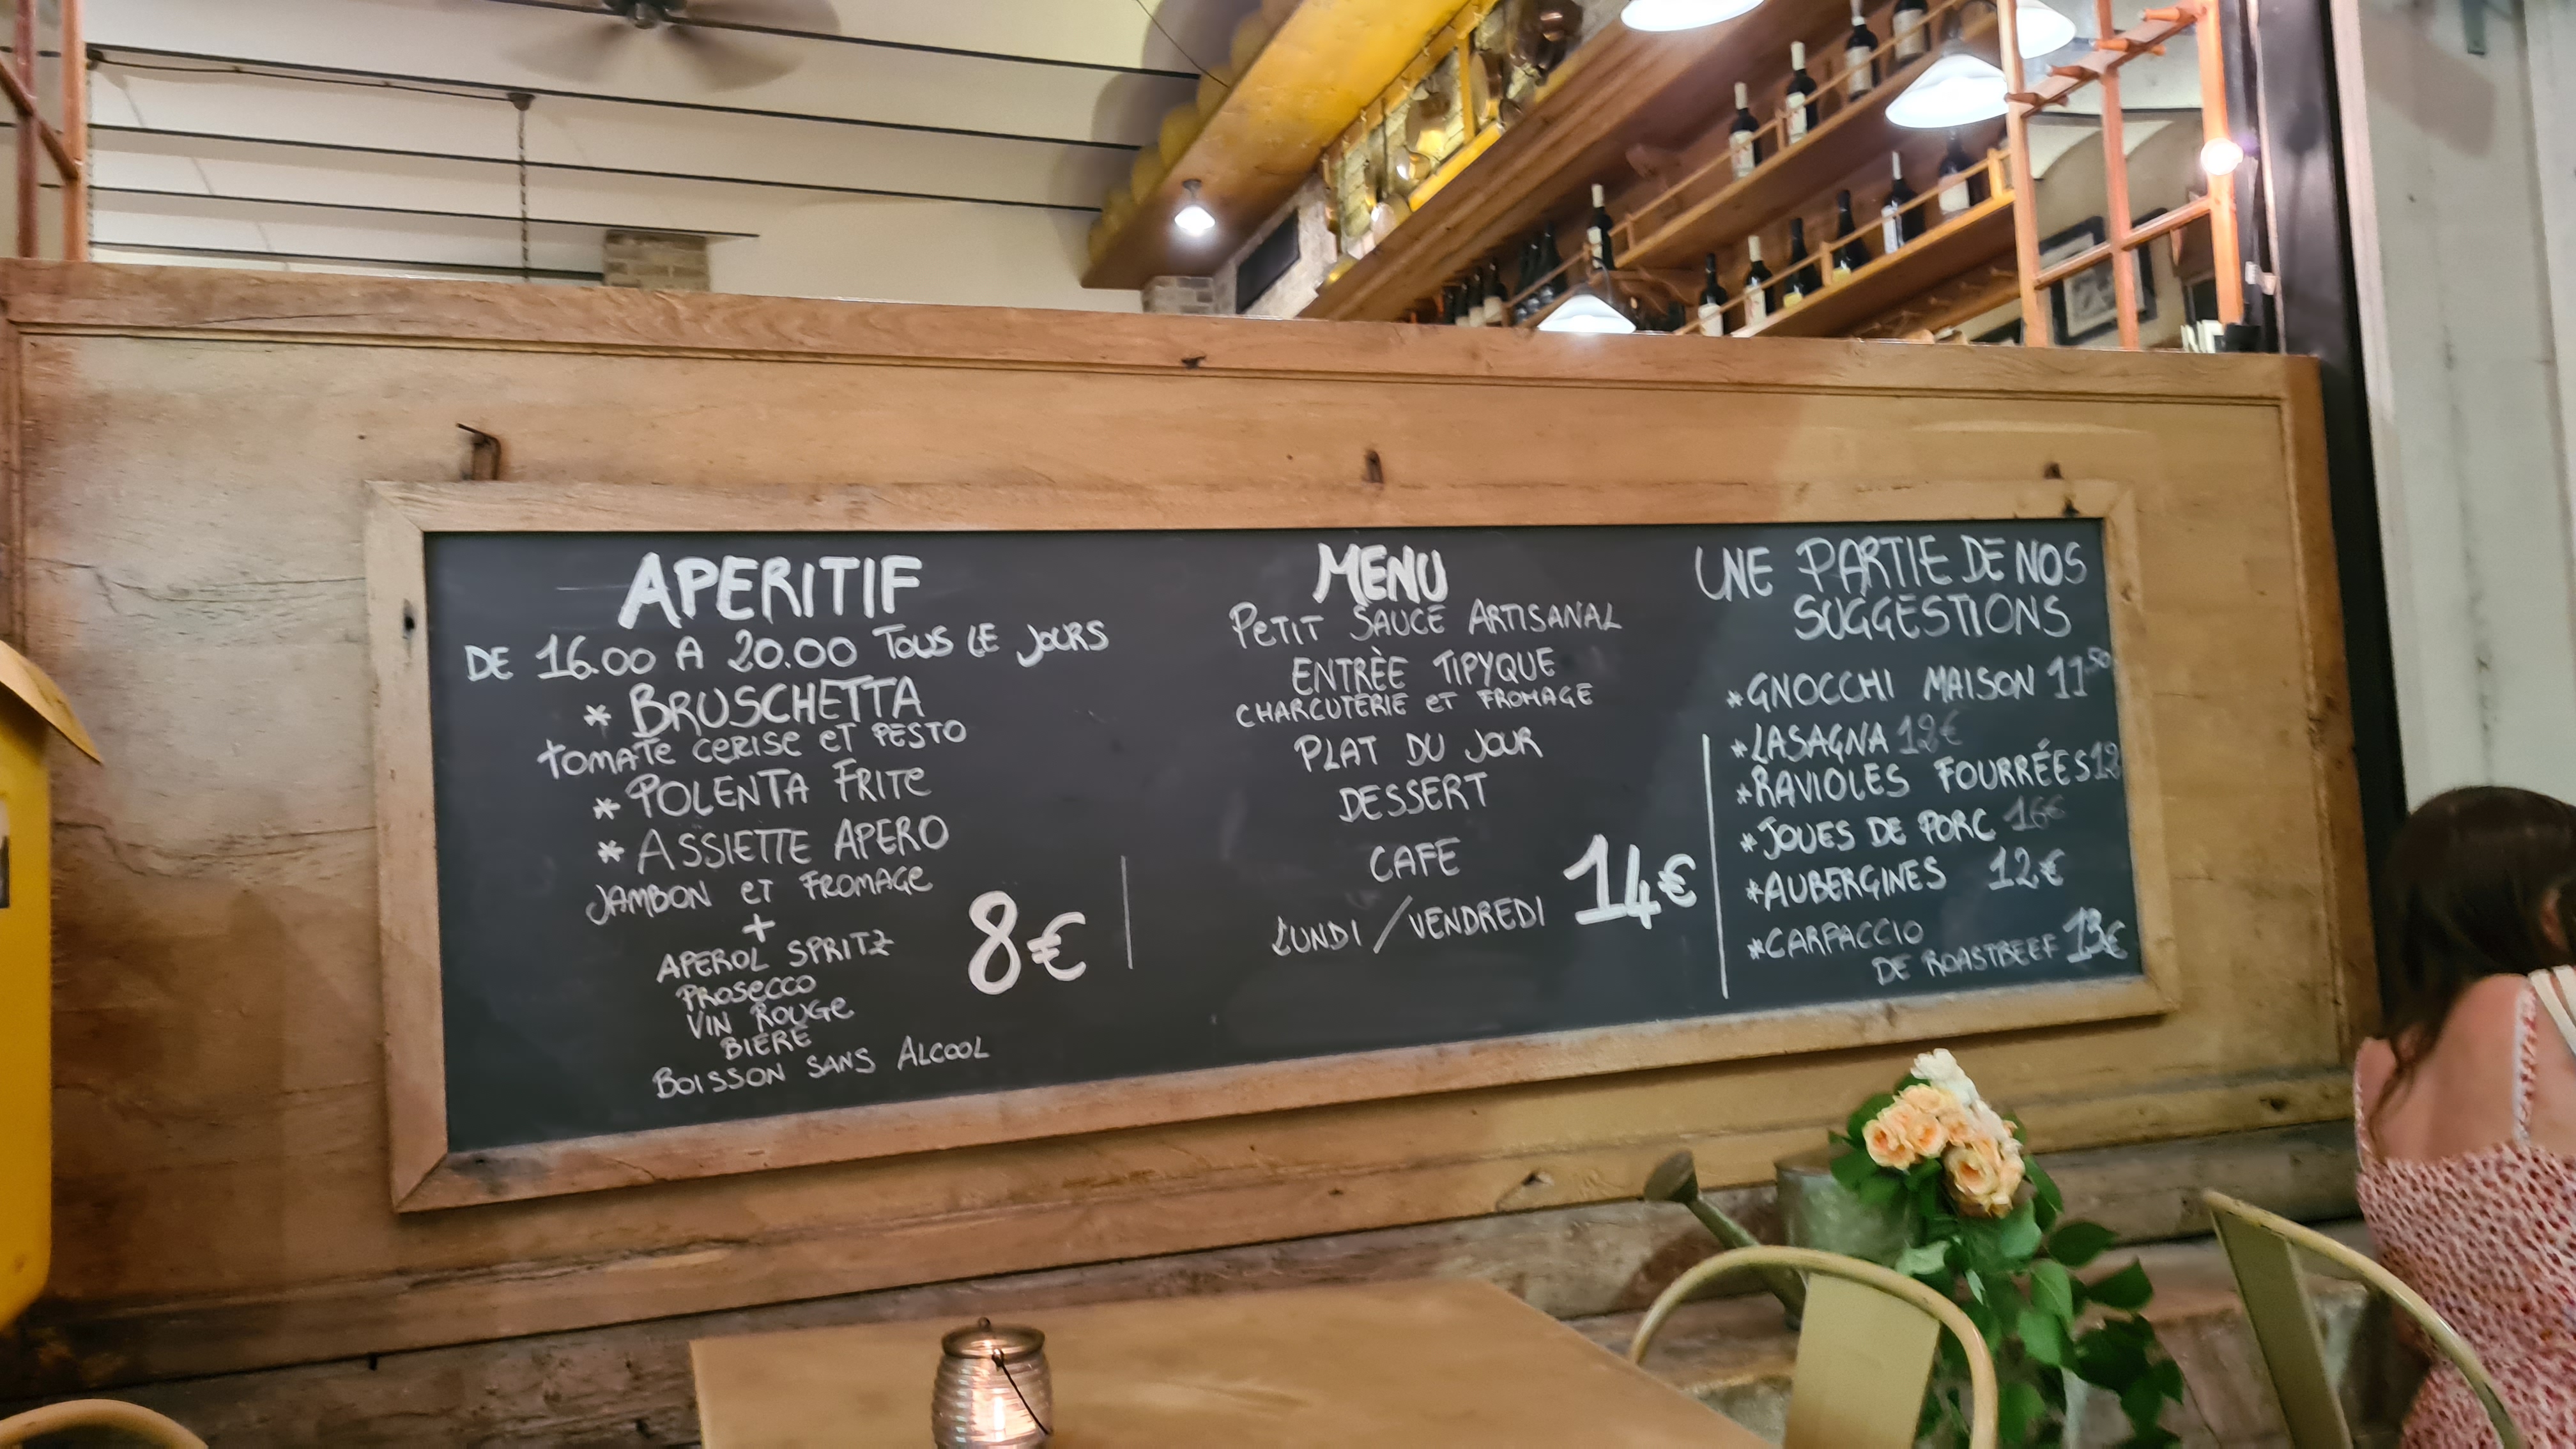 APERITIF
DE 16.00 A 20.00 TOUS LE JOURS
* BRUSCHETTA
TOMATE CERISE ET PESTO
* POLENTA FRITE
* ASSIETTE APERO
JAMBON ET FROMAGE
+
APEROL SPRITZ
PROSECCO
VIN ROUGE
BIERE
BOISSON SANS ALCOOL
8€
MENU
PETIT SAUCE ARTISANAL
ENTRÈE TIPYQUE
CHARCUTERIE ET FROMAGE
PLAT DU JOUR
DESSERT
CAFE
LUNDI / VENDREDI 14€
UNE PARTIE DE NOS
SUGGESTIONS
* GNOCCHI MAISON 11 50
* LASAGNA 12€
* RAVIOLES FOURRÉES 12
* JOUES DE PORC 16€
* AUBERGINES 12€
* CARPACCIO
DE ROASTBEEF 13€